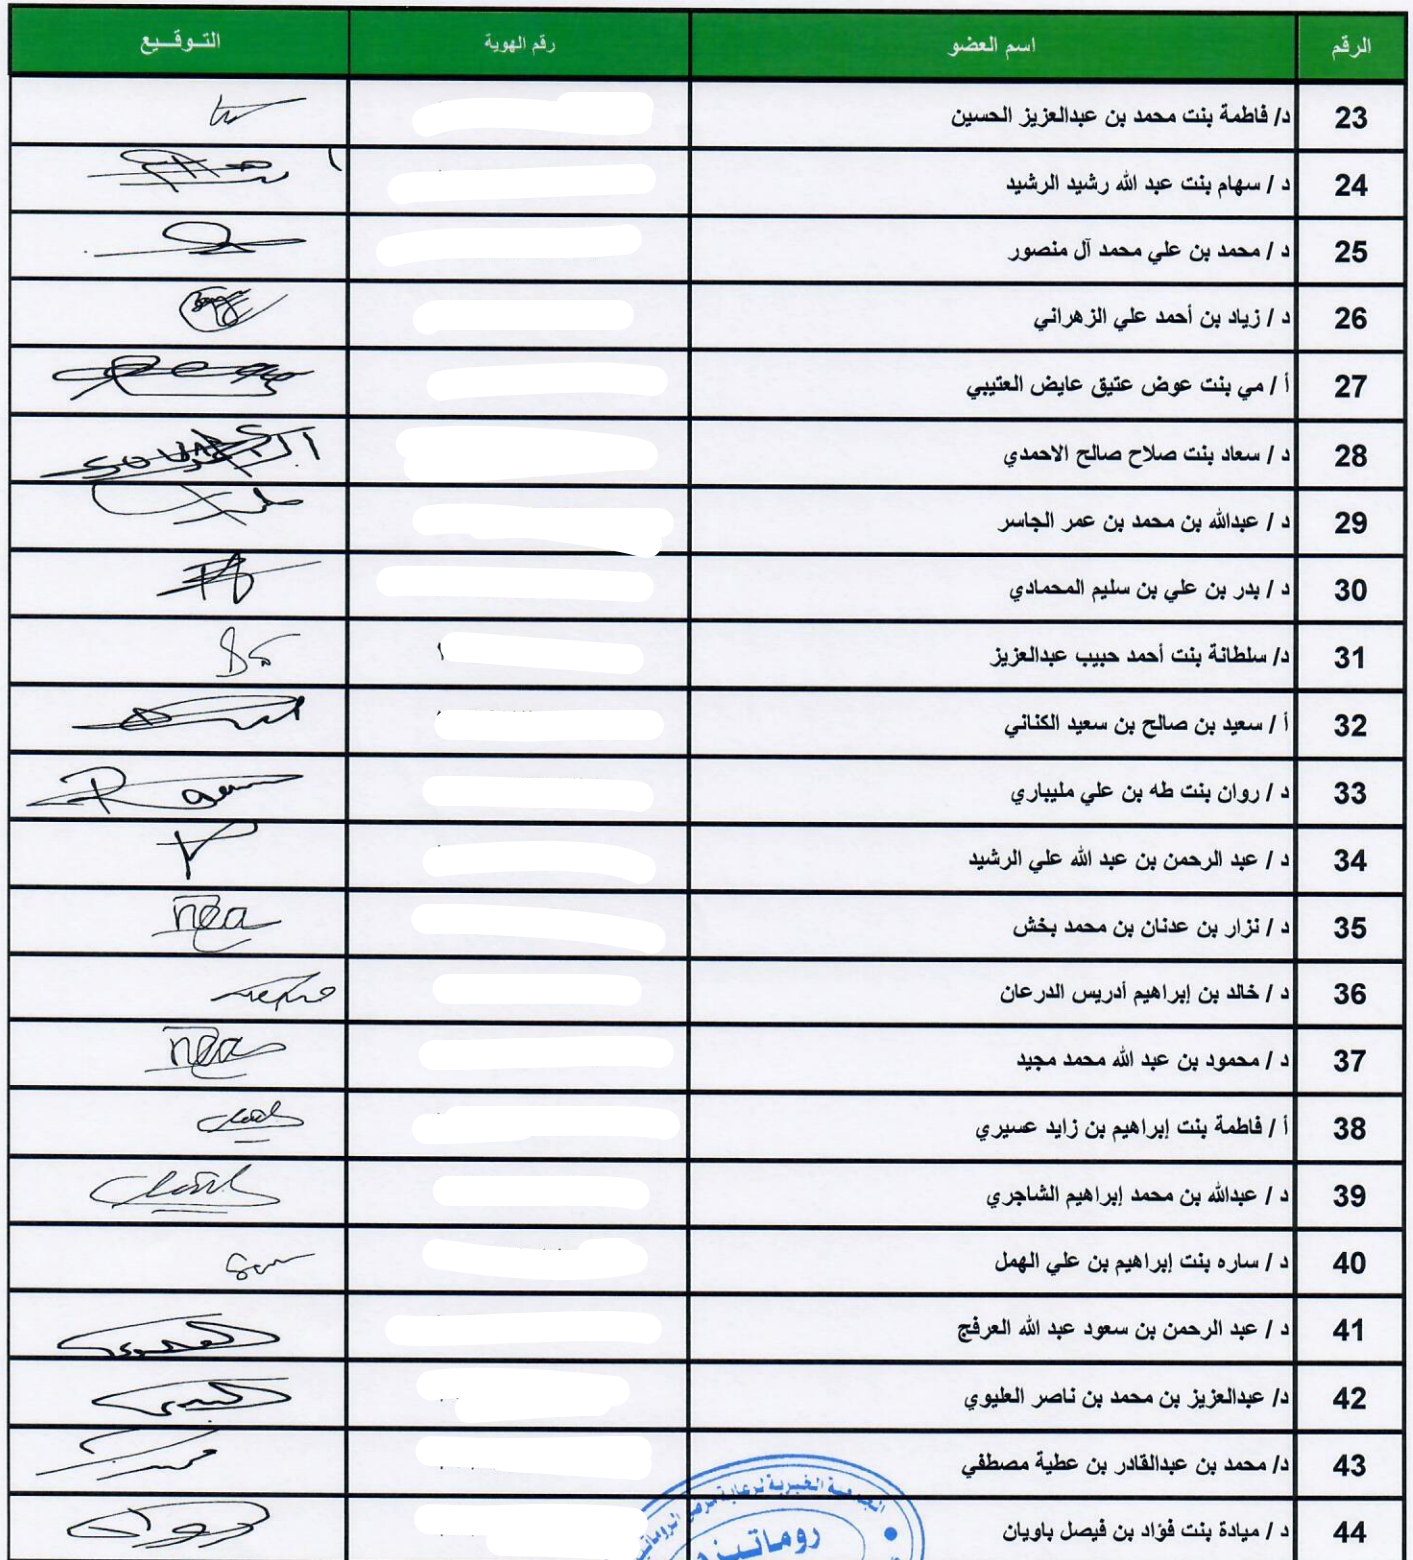 الرقم اسم العضو رقم الهوية التـوقـيع
23 د/ فاطمة بنت محمد بن عبدالعزيز الحسين
24 د / سهام بنت عبد الله رشيد الرشيد
25 د / محمد بن علي محمد آل منصور
26 د / زياد بن أحمد علي الزهراني
27 أ / مي بنت عوض عتيق عايض العتيبي
28 د / سعاد بنت صلاح صالح الاحمدي
29 د / عبدالله بن محمد بن عمر الجاسر
30 د / بدر بن علي بن سليم المحمادي
31 د/ سلطانة بنت أحمد حبيب عبدالعزيز
32 أ / سعيد بن صالح بن سعيد الكناني
33 د / روان بنت طه بن علي مليباري
34 د / عبد الرحمن بن عبد الله علي الرشيد
35 د / نزار بن عدنان بن محمد بخش
36 د / خالد بن إبراهيم أدريس الدرعان
37 د / محمود بن عبد الله محمد مجيد
38 أ / فاطمة بنت إبراهيم بن زايد عسيري
39 د / عبدالله بن محمد إبراهيم الشاجري
40 د / ساره بنت إبراهيم بن علي الهمل
41 د / عبد الرحمن بن سعود عبد الله العرفج
42 د/ عبدالعزيز بن محمد بن ناصر العليوي
43 د/ محمد بن عبدالقادر بن عطية مصطفي
44 د / ميادة بنت فؤاد بن فيصل باويان
الخيرية لرعاية مرضى
روماتيزم